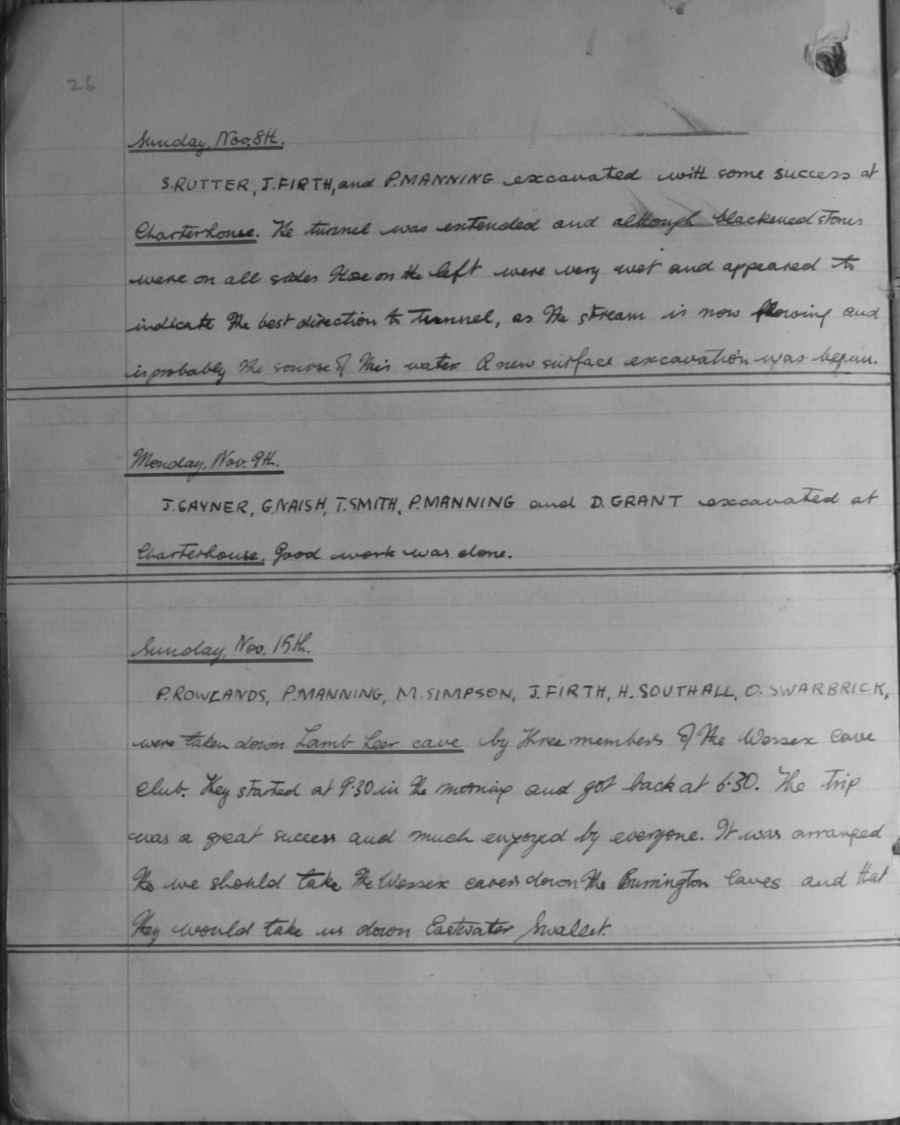 26
Sunday, Nov. 8th.
S. RUTTER, J. FIRTH, and P. MANNING excavated with some success at
Charterhouse. The tunnel was extended and although blackened stones
were on all sides those on the left were very wet and appeared to
indicate the best direction to tunnel, as the stream is now flowing and
is probably the source of this water. A new surface excavation was begun.
Monday, Nov. 9th.
J. GAYNER, G. NAISH, T. SMITH, P. MANNING and D. GRANT excavated at
Charterhouse. Good work was done.
Sunday, Nov. 15th.
P. ROWLANDS, P. MANNING, M. SIMPSON, J. FIRTH, H. SOUTHALL, O. SWARBRICK,
were taken down Lamb Leer cave by three members of the Wessex Cave
Club. They started at 9.30 in the morning and got back at 6.30. The trip
was a great success and much enjoyed by everyone. It was arranged
the we should take the Wessex cavers down the Burrington Caves and that
they would take us down Eastwater Swallet.